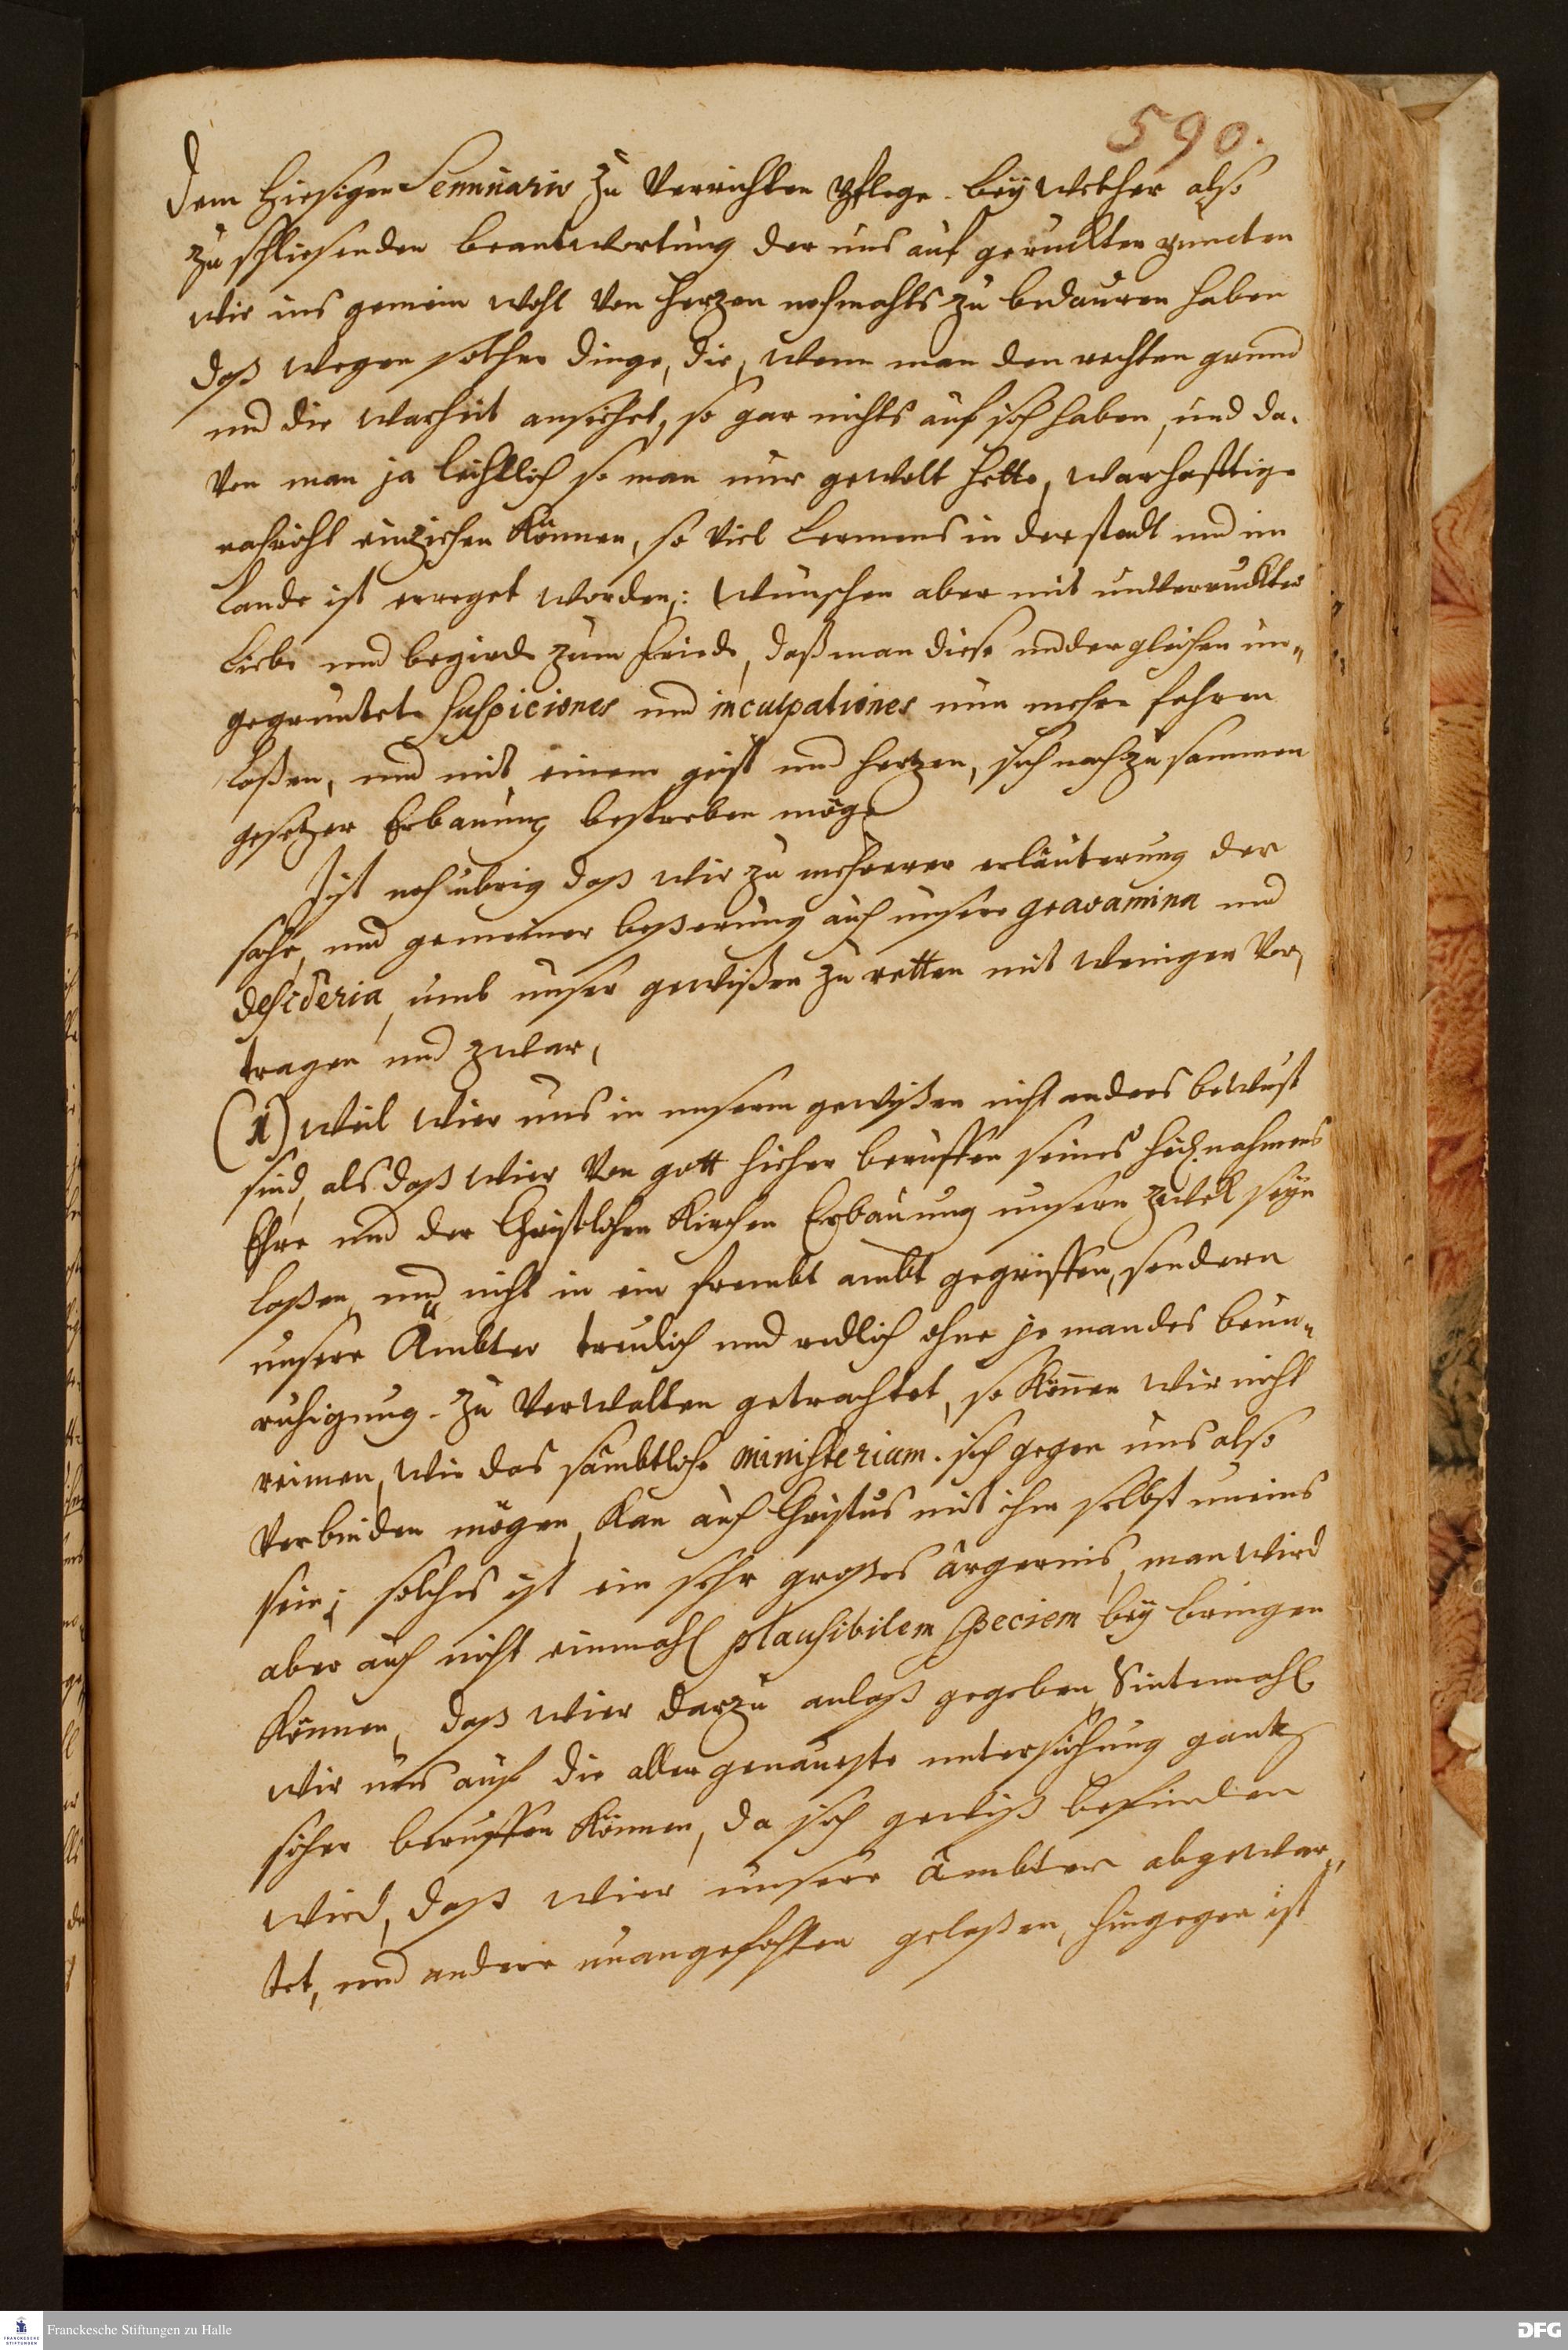 590.
dem hiesigen Seminario zu verrichten pflege. bey welcher also
zu schliesenden beantwortung der uns auf geruckten puncten
wir ins gemein wohl von herzen nochmahls zu bedauren haben
daß wegen solcher dinge, die, wenn man den rechten grund
und die warheit ansiehet, so gar nichts auf sich haben, und da-
von man ja leichtlich so man nur gewolt hette, warhafftige
nachricht einziehen können, so viel Lermens in der stadt und im
Lande ist erreget worden: wünschen aber mit unverruckter
Liebe und begierde zum Friede, daß man diese und dergleichen un-
gegruntete suspiciones und inculpationes nun mehro fahren
laßen, und mit einem geist und hertzen, sich nach zusammen
gesetzer Erbauung bestreben möge
Ist noch übrig daß wir zu mehrerer erläuterung der
sache, und gemeiner beßerung auch unsere gravamina und
desideria, umb unser gewißen zu retten mit wenigen vor-
tragen und zwar,
(1) weil wier uns in unserm gewißen nicht anders bewust
sind, als daß wier von gott hieher beruffen seines heil. nahmens
Ehre und der Christlichen Kirchen Erbauung unsern zwek seyn
laßen, und nicht in ein frembt ambt gegriffen, sondern
unsere Ämbter treulich und redlich ohne jemandes beun-
ruhigung zu verwalten getrachtet, so können wir nicht
reimen, wie das sämbtliche ministerium sich gegen uns also
verbinden mögen, kan auch Christus mit ihm selbst uneins
sein; solches ist ein sehr großes ärgernis, man wird
aber auch nicht einmahl plausibilem speciem bey bringen
können, daß wier darzu anlaß gegeben, Sintemahl
wir uns auf die aller genaueste untersuchung gantz
sicher beruffen können, da sich gewiß befinden
wird, daß wier unsere ämbter abgewar-
tet, und andere unangefochten gelaßen, hingegen ist
Franckesche Stiftungen zu Halle
DFG